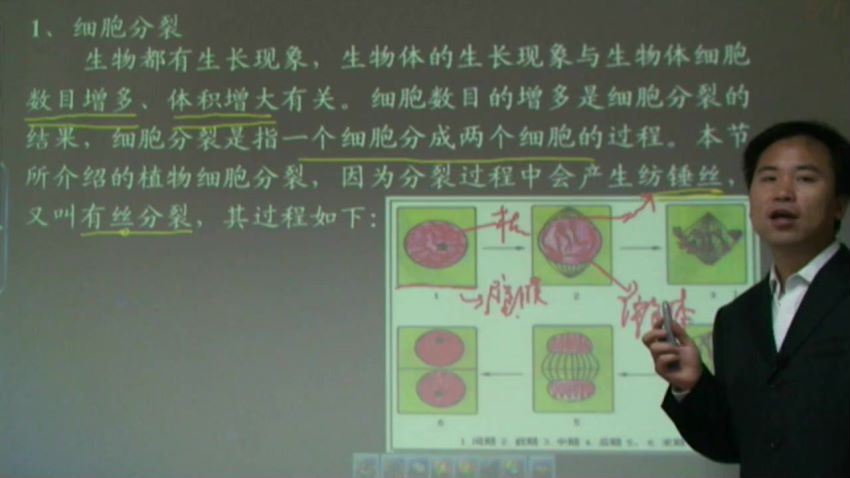 1、细胞分裂
生物都有生长现象，生物体的生长现象与生物体细胞
数目增多、体积增大有关。细胞数目的增多是细胞分裂的
结果，细胞分裂是指一个细胞分成两个细胞的过程。本节
所介绍的植物细胞分裂，因为分裂过程中会产生纺锤丝，
又叫有丝分裂，其过程如下：
1 2 3
6 5
1.间期 2.前期 3.中期 4.后期 5、6.末期